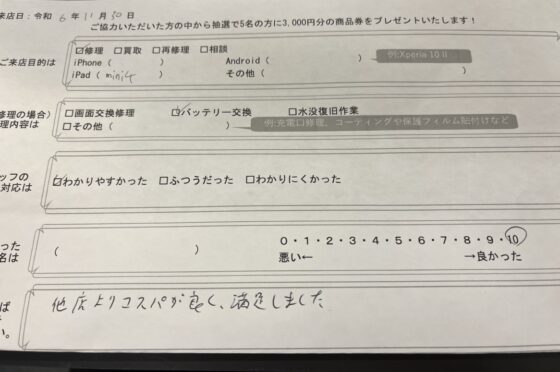 来店日：令和 6 年 11 月 30 日
ご協力いただいた方の中から抽選で5名の方に3,000円分の商品券をプレゼントいたします！
☑修理 □買取 □再修理 □相談
ご来店目的は
iPhone（ ） Android（ ） 例:Xperia 10 II
iPad（mini4 ） その他（ ）
修理の場合）
理内容は
□画面交換修理 ☑バッテリー交換 □水没復旧作業
□その他（ ） 例:充電口修理、コーティングや保護フィルム貼付けなど
ッフの
対応は
☑わかりやすかった □ふつうだった □わかりにくかった
った
名は
（ ） 0・1・2・3・4・5・6・7・8・9・10
悪い← →良かった
他店よりコスパが良く、満足しました
ば
い。